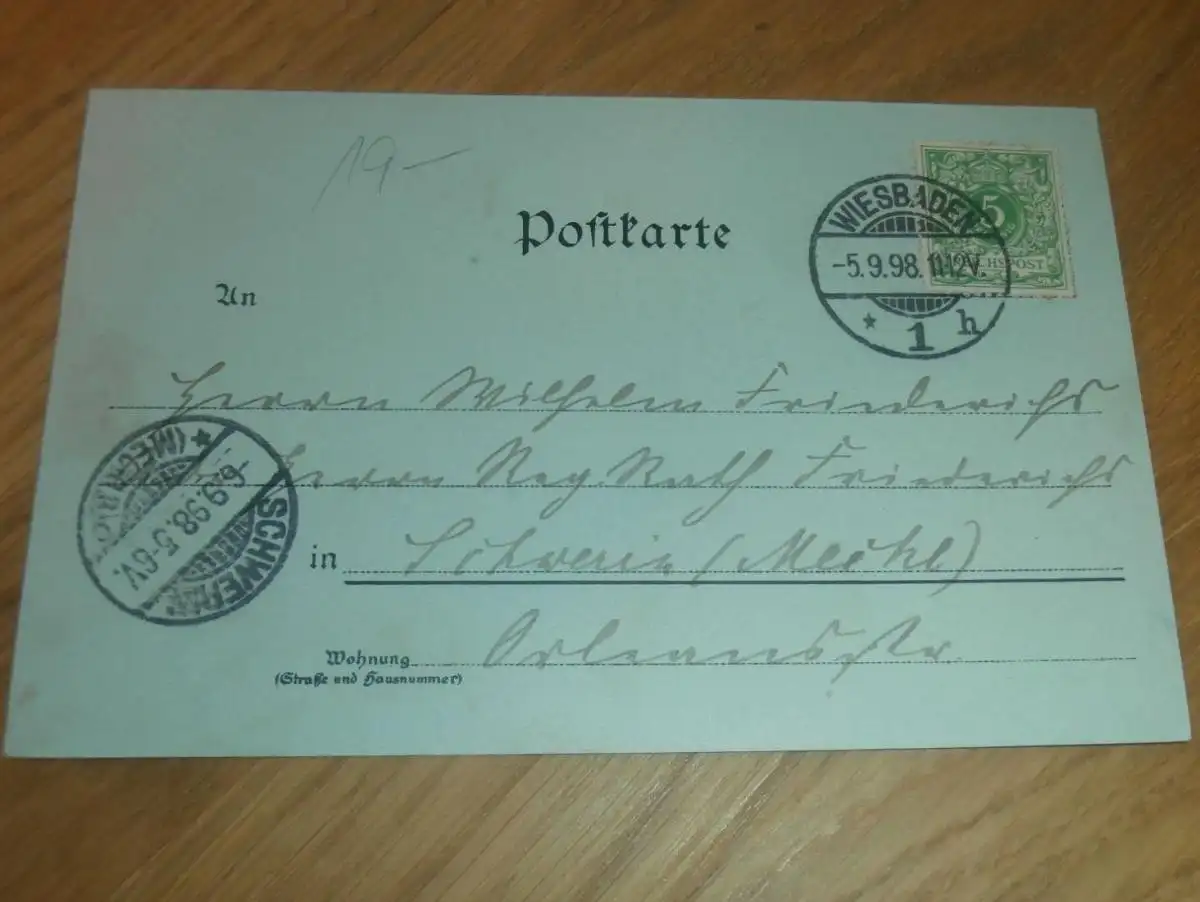 19-
Postkarte
5
REICHSPOST
WIESBADEN
-5.9.98.11-12V.
* 1 h
An
Herrn Wilhelm Friederichs
Herrn Reg. Rath Friederichs
in Schwerin (Meckl)
Wohnung Orleansstr.
(Straße und Hausnummer)
SCHWERIN
-6.9.98.5-6V.
(MECKLB)
*